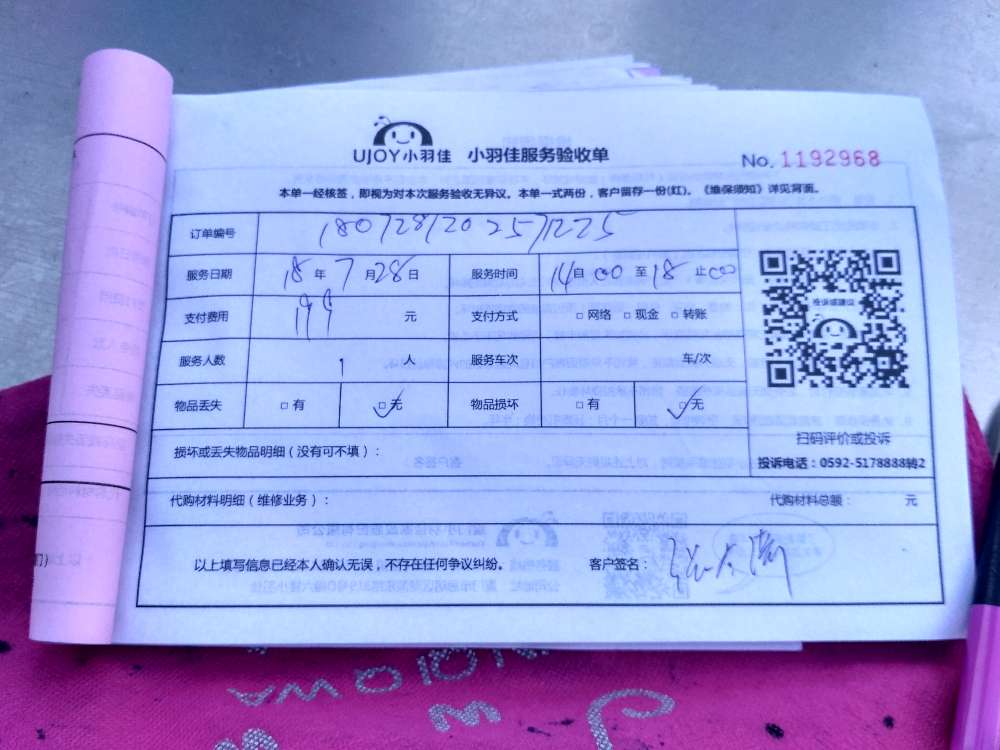 UJOY小羽佳 小羽佳服务验收单
No. 1192968
本单一经核签，即视为对本次服务验收无异议。本单一式两份，客户留存一份(红)。《维保须知》详见背面。
订单编号 1807281202571225
服务日期 18 年 7 月 28 日 服务时间 14 自 00 至 18 止 00
支付费用 199 元 支付方式 □ 网络 □ 现金 □ 转账
投诉或建议
服务人数 1 人 服务车次 车/次
物品丢失 □ 有 ☑ 无 物品损坏 □ 有 ☑ 无
扫码评价或投诉
损坏或丢失物品明细（没有可不填）：
投诉电话：0592-5178888转2
代购材料明细（维修业务）： 代购材料总额： 元
以上填写信息已经本人确认无误，不存在任何争议纠纷。 客户签名：